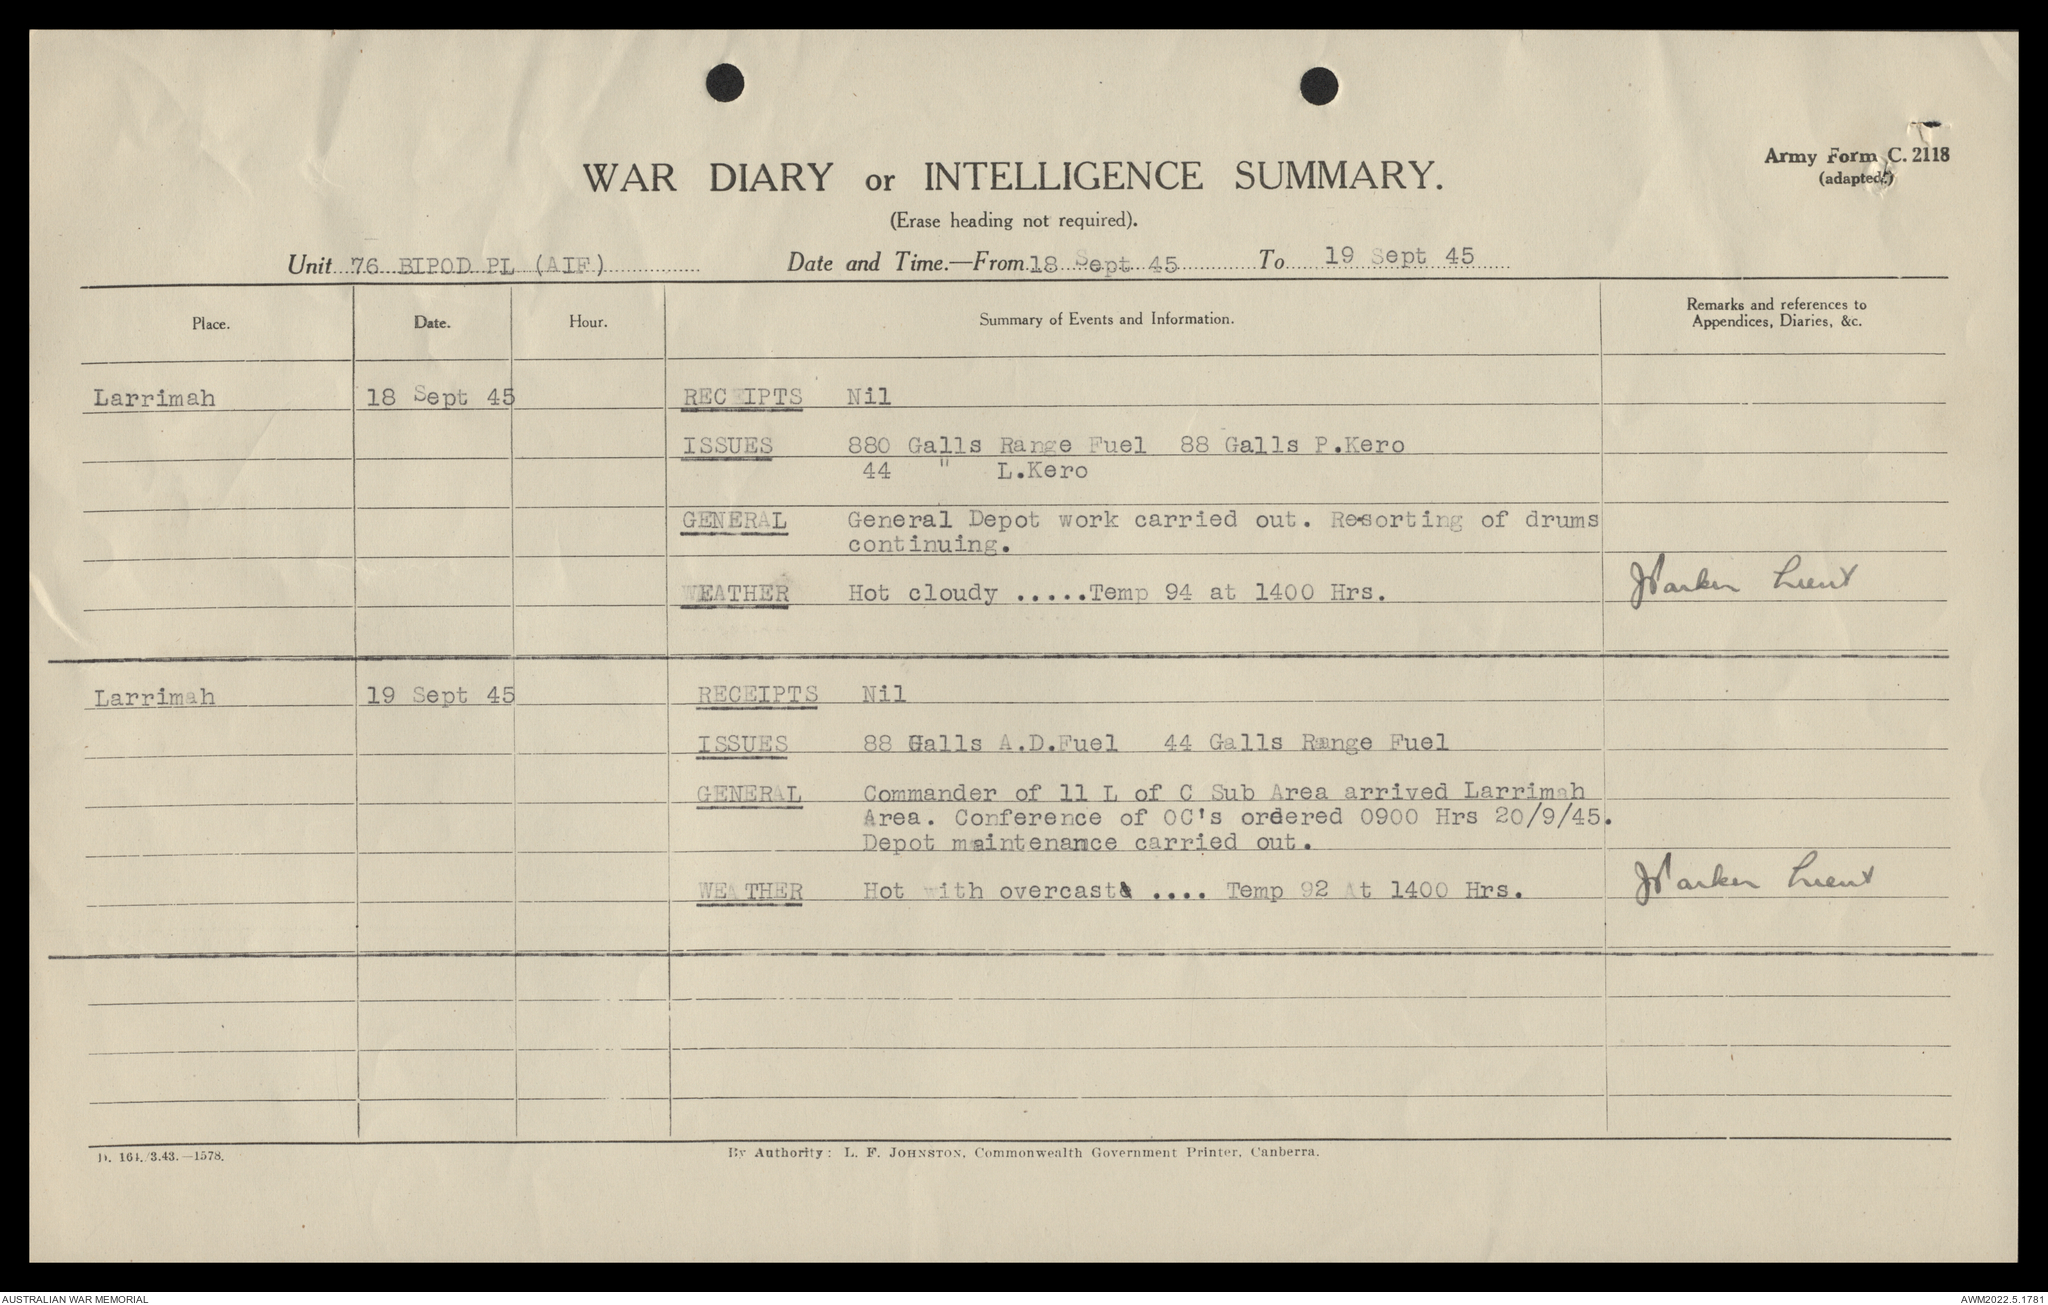 WAR DIARY or INTELLIGENCE SUMMARY.
Army Form C. 2118
(adapted.)
(Erase heading not required).
Unit 76 BIPOD PL (AIF) Date and Time.—From 18 Sept 45 To 19 Sept 45
Place. Date. Hour. Summary of Events and Information. Remarks and references to
Appendices, Diaries, &c.
Larrimah 18 Sept 45 RECEIPTS Nil
ISSUES 880 Galls Range Fuel 88 Galls P.Kero
44 " L.Kero
GENERAL General Depot work carried out. Resorting of drums
continuing.
WEATHER Hot cloudy .....Temp 94 at 1400 Hrs. JParker Lieut
Larrimah 19 Sept 45 RECEIPTS Nil
ISSUES 88 Galls A.D.Fuel 44 Galls Range Fuel
GENERAL Commander of 11 L of C Sub Area arrived Larrimah
Area. Conference of OC's ordered 0900 Hrs 20/9/45.
Depot maintenance carried out.
WEATHER Hot with overcast .... Temp 92 At 1400 Hrs. JParker Lieut
D. 164./3.43.—1578. By Authority: L. F. JOHNSTON, Commonwealth Government Printer, Canberra.
AUSTRALIAN WAR MEMORIAL AWM2022.5.1781